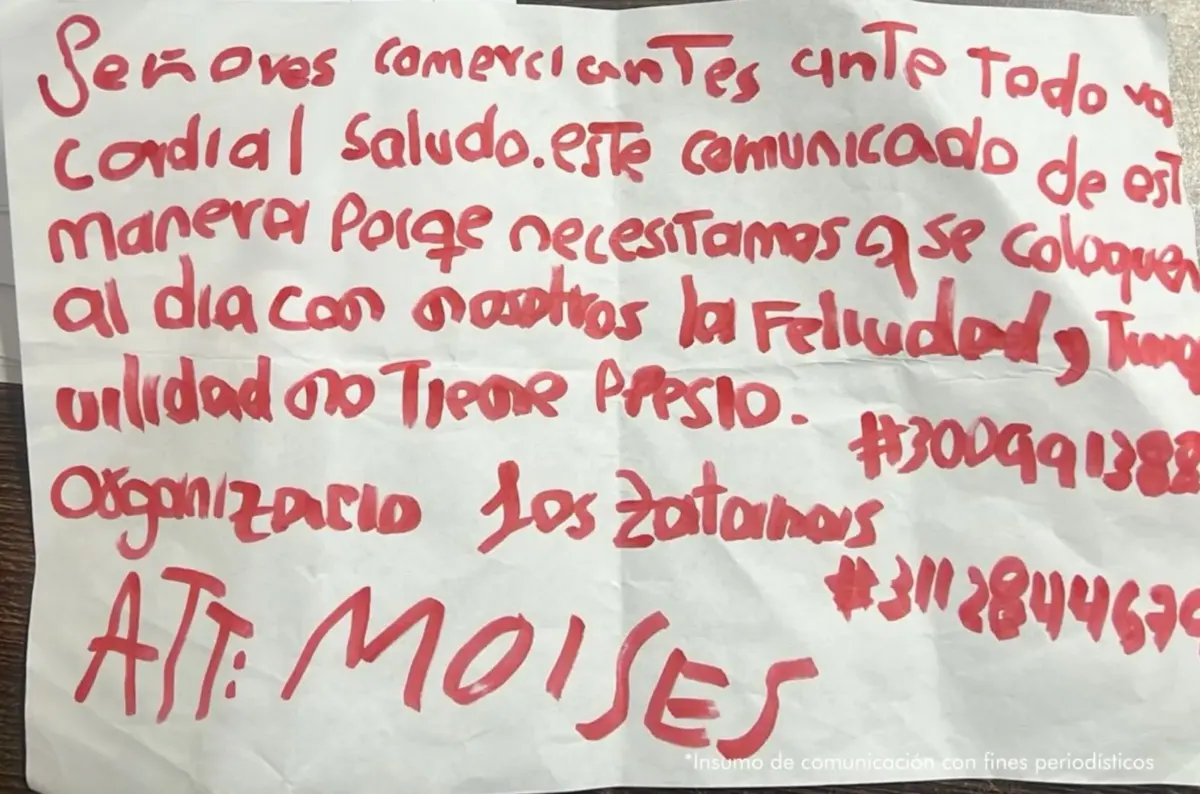 Señores comerciantes ante Todo va
cordial saludo. este comunicado de est
manera Porqe necesitamos q se coloquen
al dia con nosotros la Felicidad y Tranq
uilidad no Tiene Presio.
#3009913882
Organizacio los zatanas
#3112844679
ATT: MOISES
*Insumo de comunicación con fines periodísticos